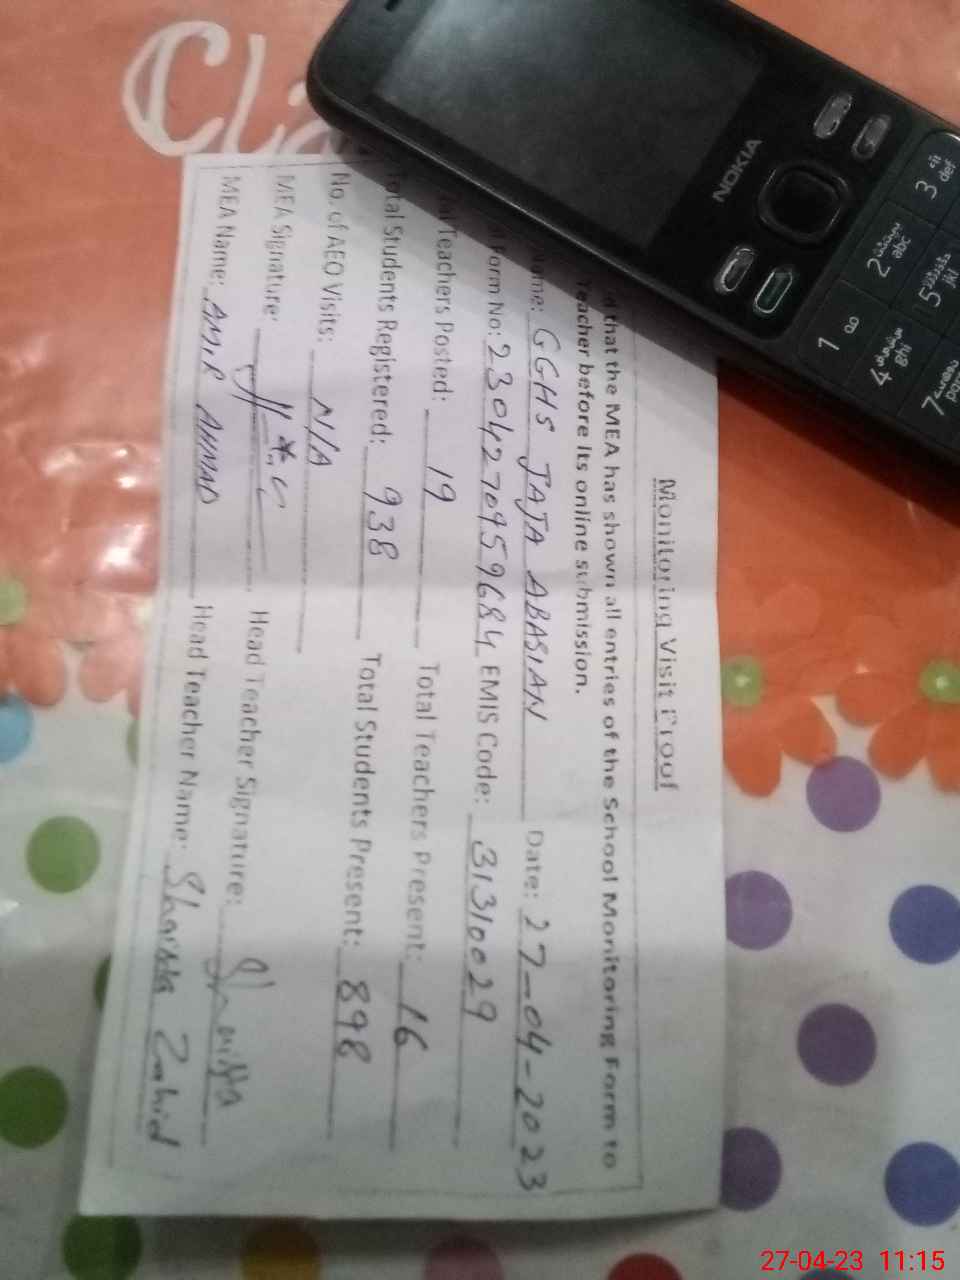 Cla
NOKIA
1
2 abc
3 def
4 ghi
5 jkl
7
Monitoring Visit Proof
that the MEA has shown all entries of the School Monitoring Form to
Teacher before its online submission.
Name: GGHS JAJA ABASIAN Date: 27-04-2023
Form No: 2304270959684 EMIS Code: 31310029
Teachers Posted: 19 Total Teachers Present: 16
Total Students Registered: 938 Total Students Present: 898
No. of AEO Visits: N/A
MEA Signature: Head Teacher Signature:
MEA Name: AMIR AHMAD Head Teacher Name: Zahid
27-04-23 11:15